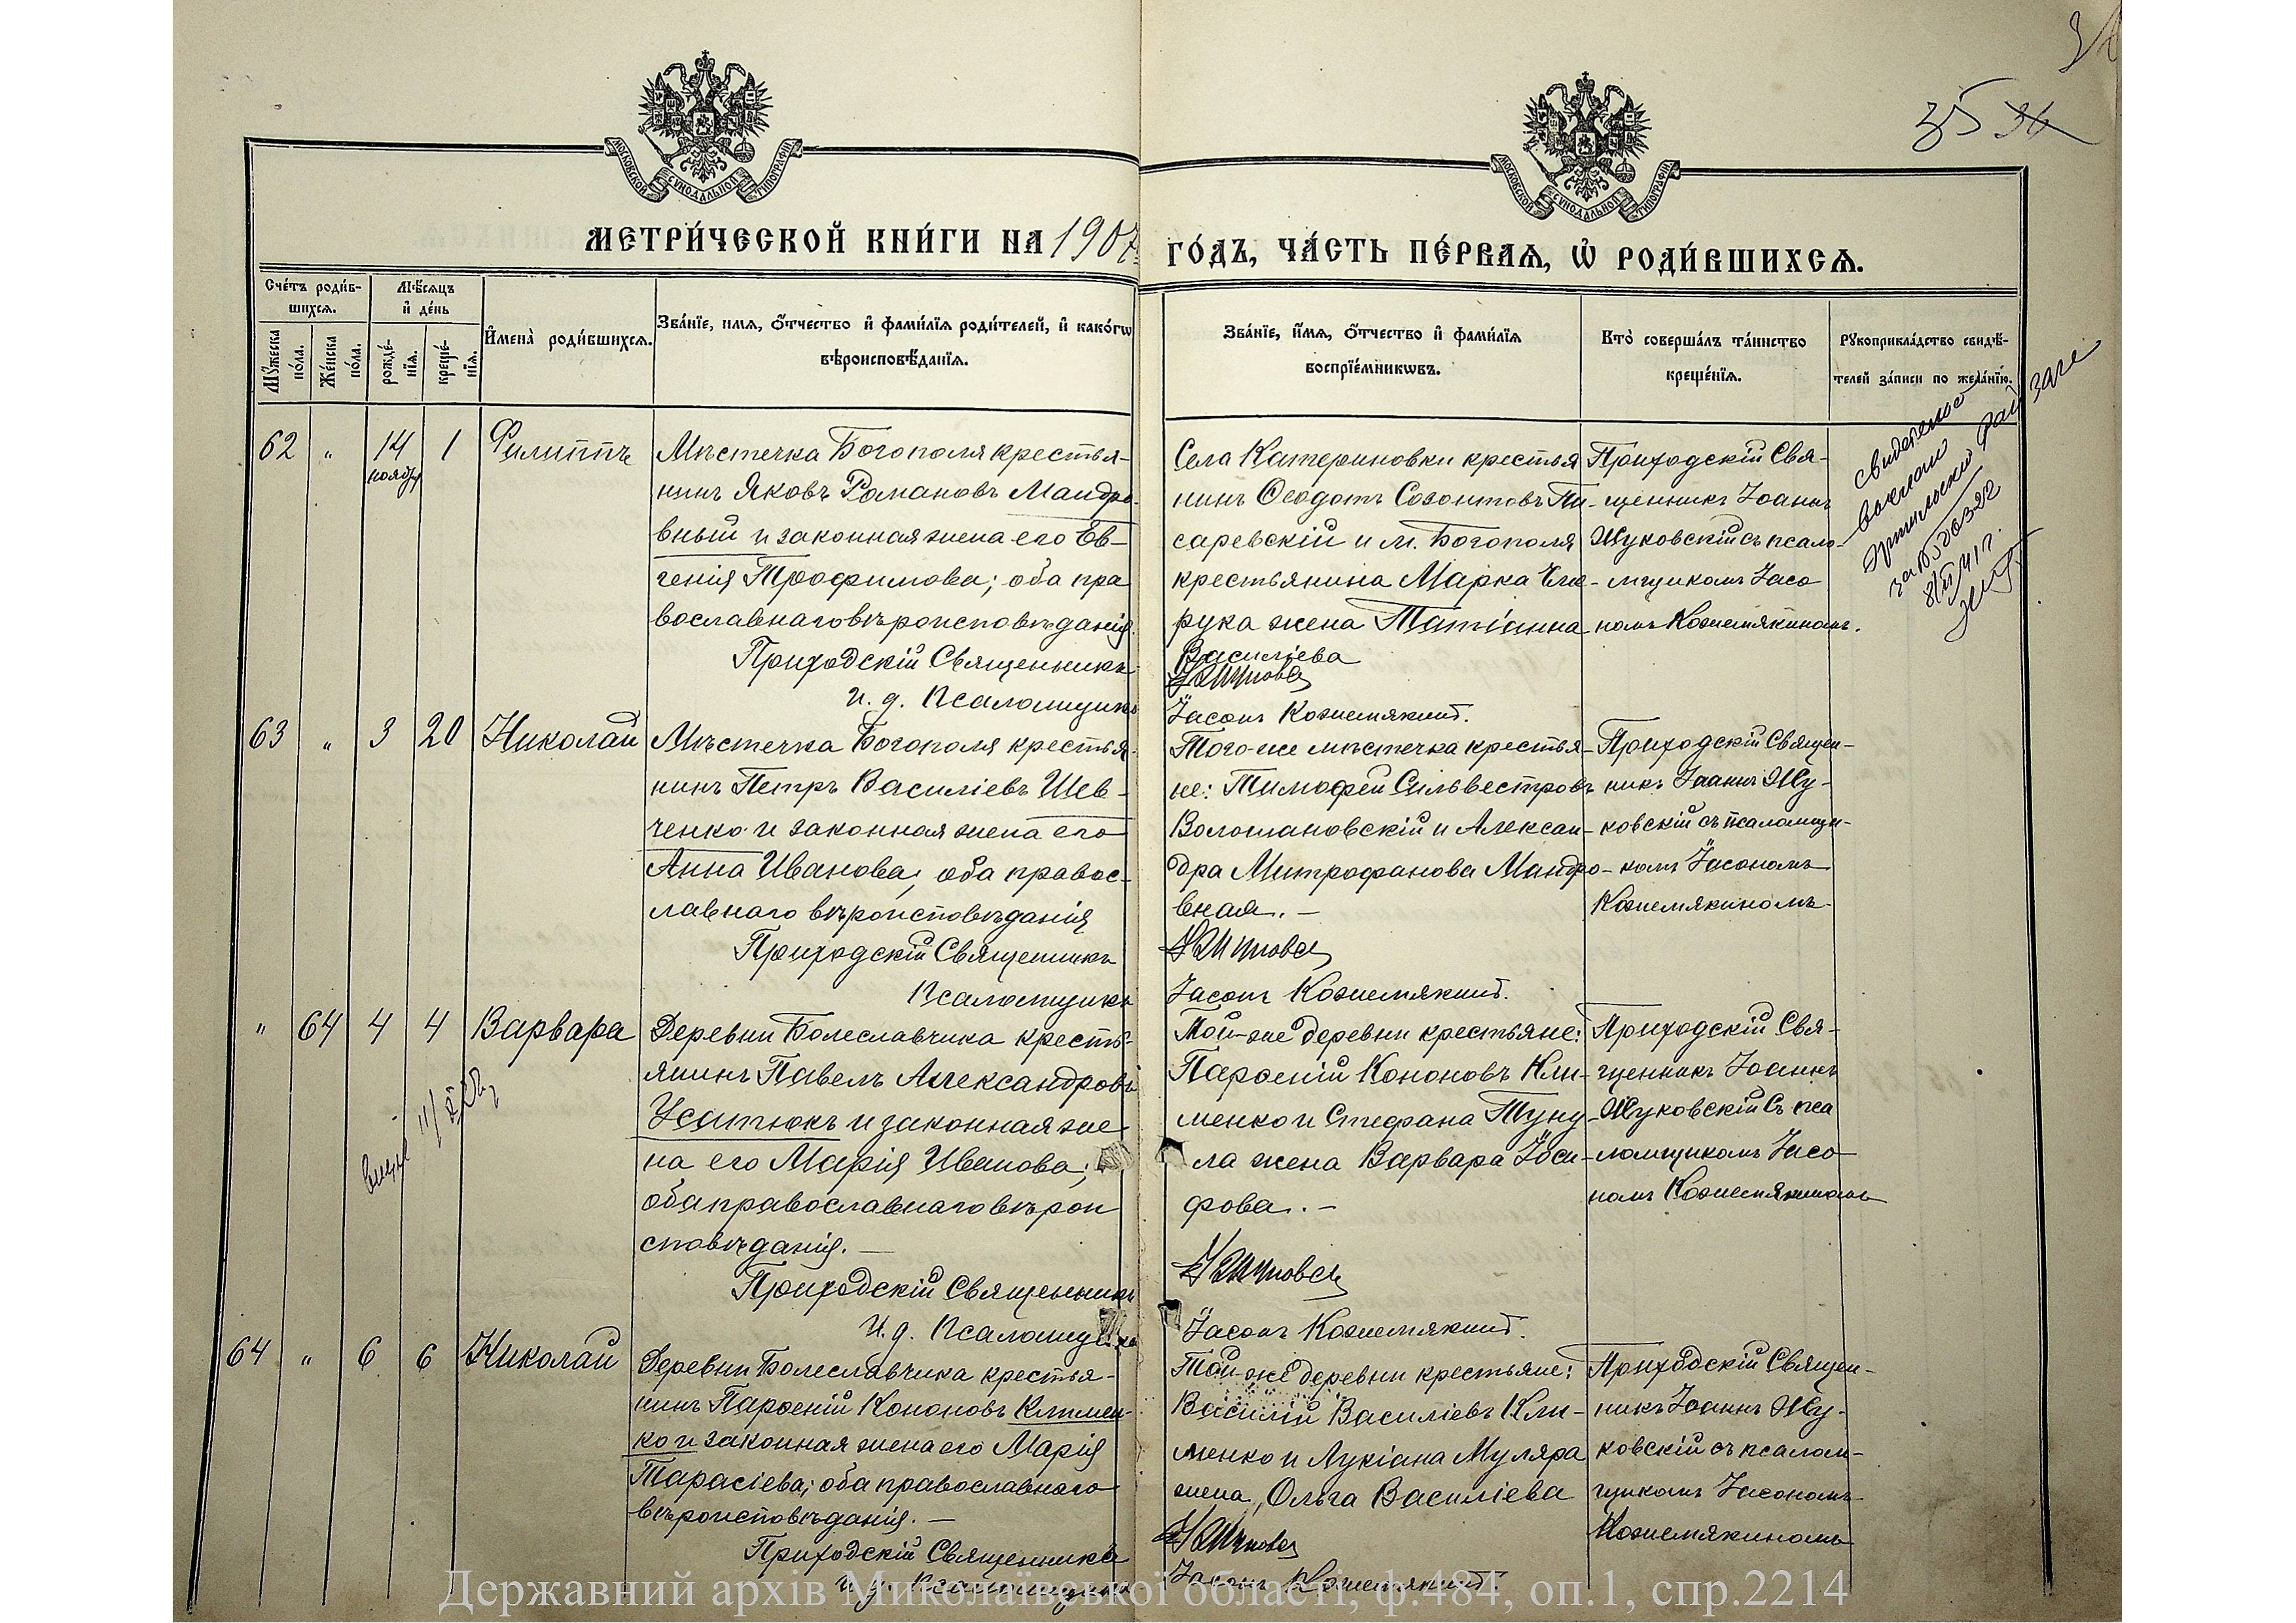 35 36
МОСКОВСКОЙ СУНОДАЛЬНОЙ ТИПОГРАФІИ
МОСКОВСКОЙ СУНОДАЛЬНОЙ ТИПОГРАФІИ
МЕТРИ́ЧЕСКОЙ КНИ́ГИ НА 1907
ГО́ДЪ, ЧА́СТЬ ПЕ́РВАѦ, Ѡ҆ РОДИ́ВШИХСѦ.
Сче́тъ роди́в-
шихсѧ.
Мꙋ́жеска по́ла.
Же́нска по́ла.
Мѣ́сѧцъ
и҆ де́нь
рожде́-
нїѧ.
креще́-
нїѧ.
И҆мена̀ роди́вшихсѧ.
Зва́нїе, и҆мѧ, ѻ҆́тчество и҆ фами́лїѧ роди́телей, и҆ како́гѡ
вѣроисповѣ́данїѧ.
Зва́нїе, и҆́мѧ, ѻ҆́тчество и҆ фами́лїѧ
воспрїе́мникѡвъ.
Кто̀ соверша́лъ та́инство
креще́нїѧ.
Рꙋкоприкла́дство свидѣ́-
телей за́писи по жела́нїю.
62 " 14 1 Филиппъ
ноября
Мѣстечка Богополя крестья-
нинъ Яковъ Романовъ Мандро-
вный и законная жена его Ев-
генія Трофимова; оба пра
вославнаго вѣроисповѣданія.
Приходскій Священникъ
и. д. Псаломщика
Села Катериновки крестья
нинъ Ѳеодотъ Созонтовъ Пи-
саревскій и м. Богополя
крестьянина Марка
рука жена Татіана
Василіева
Іасонъ Кожемякинъ.
Приходскій Свя-
щенникъ Іоаннъ
Жуковскій съ псало-
мщикомъ Іасо
номъ Кожемякинымъ.
63 " 3 20 Николай
Мѣстечка Богополя крестья-
нинъ Петръ Василіевъ Шев-
ченко и законная жена его
Анна Иванова; оба правос-
лавнаго вѣроисповѣданія
Приходскій Священникъ
Псаломщикъ
Того-же мѣстечка крестья-
не: Тимофей Сильвестровъ
Волошановскій и Алексан-
дра Митрофанова Мандро-
вная. -
Іасонъ Кожемякинъ.
Приходскій Священ-
никъ Іоаннъ Жу-
ковскій съ псаломщи-
комъ Іасономъ
Кожемякиномъ.
" 64 4 4 Варвара
Деревни Болеславчика кресть-
янинъ Павелъ Александровъ
Усатюкъ и законная же
на его Марія Иванова;
оба православнаго вѣрои
сповѣданія. —
Приходскій Священникъ
И. д. Псаломщика
Той-же деревни крестьяне:
Парѳеній Кононовъ Кли-
менко и Стефана Туну
ла жена Варвара Іоси-
фова. -
Іасонъ Кожемякинъ.
Приходскій Свя-
щенникъ Іоаннъ
Жуковскій съ пса
ломщикомъ Іасо
номъ Кожемякиномъ
64 " 6 6 Николай
Деревни Болеславчика крестья-
нинъ Парѳеній Кононовъ Климен-
ко и законная жена его Марія
Тарасіева; оба православнаго
вѣроисповѣданія. —
Приходскій Священникъ
и. д. Псаломщика
Той-же деревни крестьяне:
Василій Василіевъ Кли-
менко и Лукіана Муляра
жена, Ольга Василіева
Іасонъ Кожемякинъ
Приходскій Священ-
никъ Іоаннъ Жу-
ковскій съ псалом-
щикомъ Іасономъ
Кожемякиномъ
Державний архів Миколаївської області, ф.484, оп.1, спр.2214